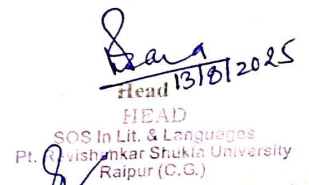 13/8/2025
Head
HEAD
SOS In Lit. & Languages
Pt. Ravishankar Shukla University
Raipur (C.G.)